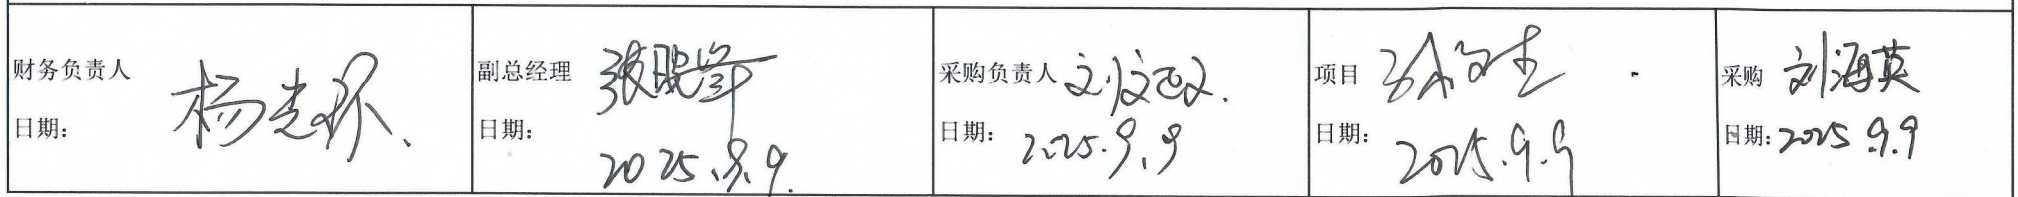 财务负责人 杨志环
日期:
副总经理 张晓峰
日期:
2025.9.9.
采购负责人 刘
日期: 2025.9.9
项目
日期: 2025.9.9
采购 刘海英
日期: 2025.9.9